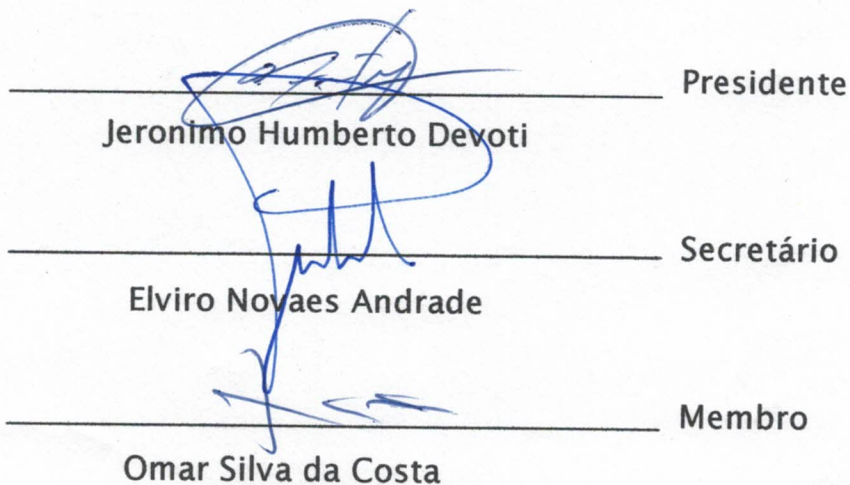 Presidente
Jeronimo Humberto Devoti
Secretário
Elviro Novaes Andrade
Membro
Omar Silva da Costa